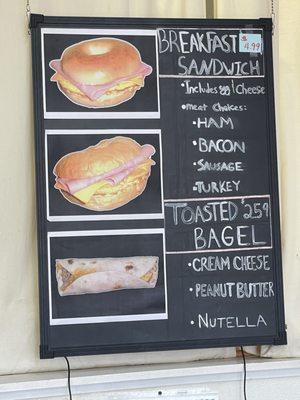 BREAKFAST $4.99
SANDWICH
• Includes egg | Cheese
• meat Choices:
• HAM
• BACON
• SAUSAGE
• TURKEY
TOASTED $2.59
BAGEL
• CREAM CHEESE
• PEANUT BUTTER
• NUTELLA